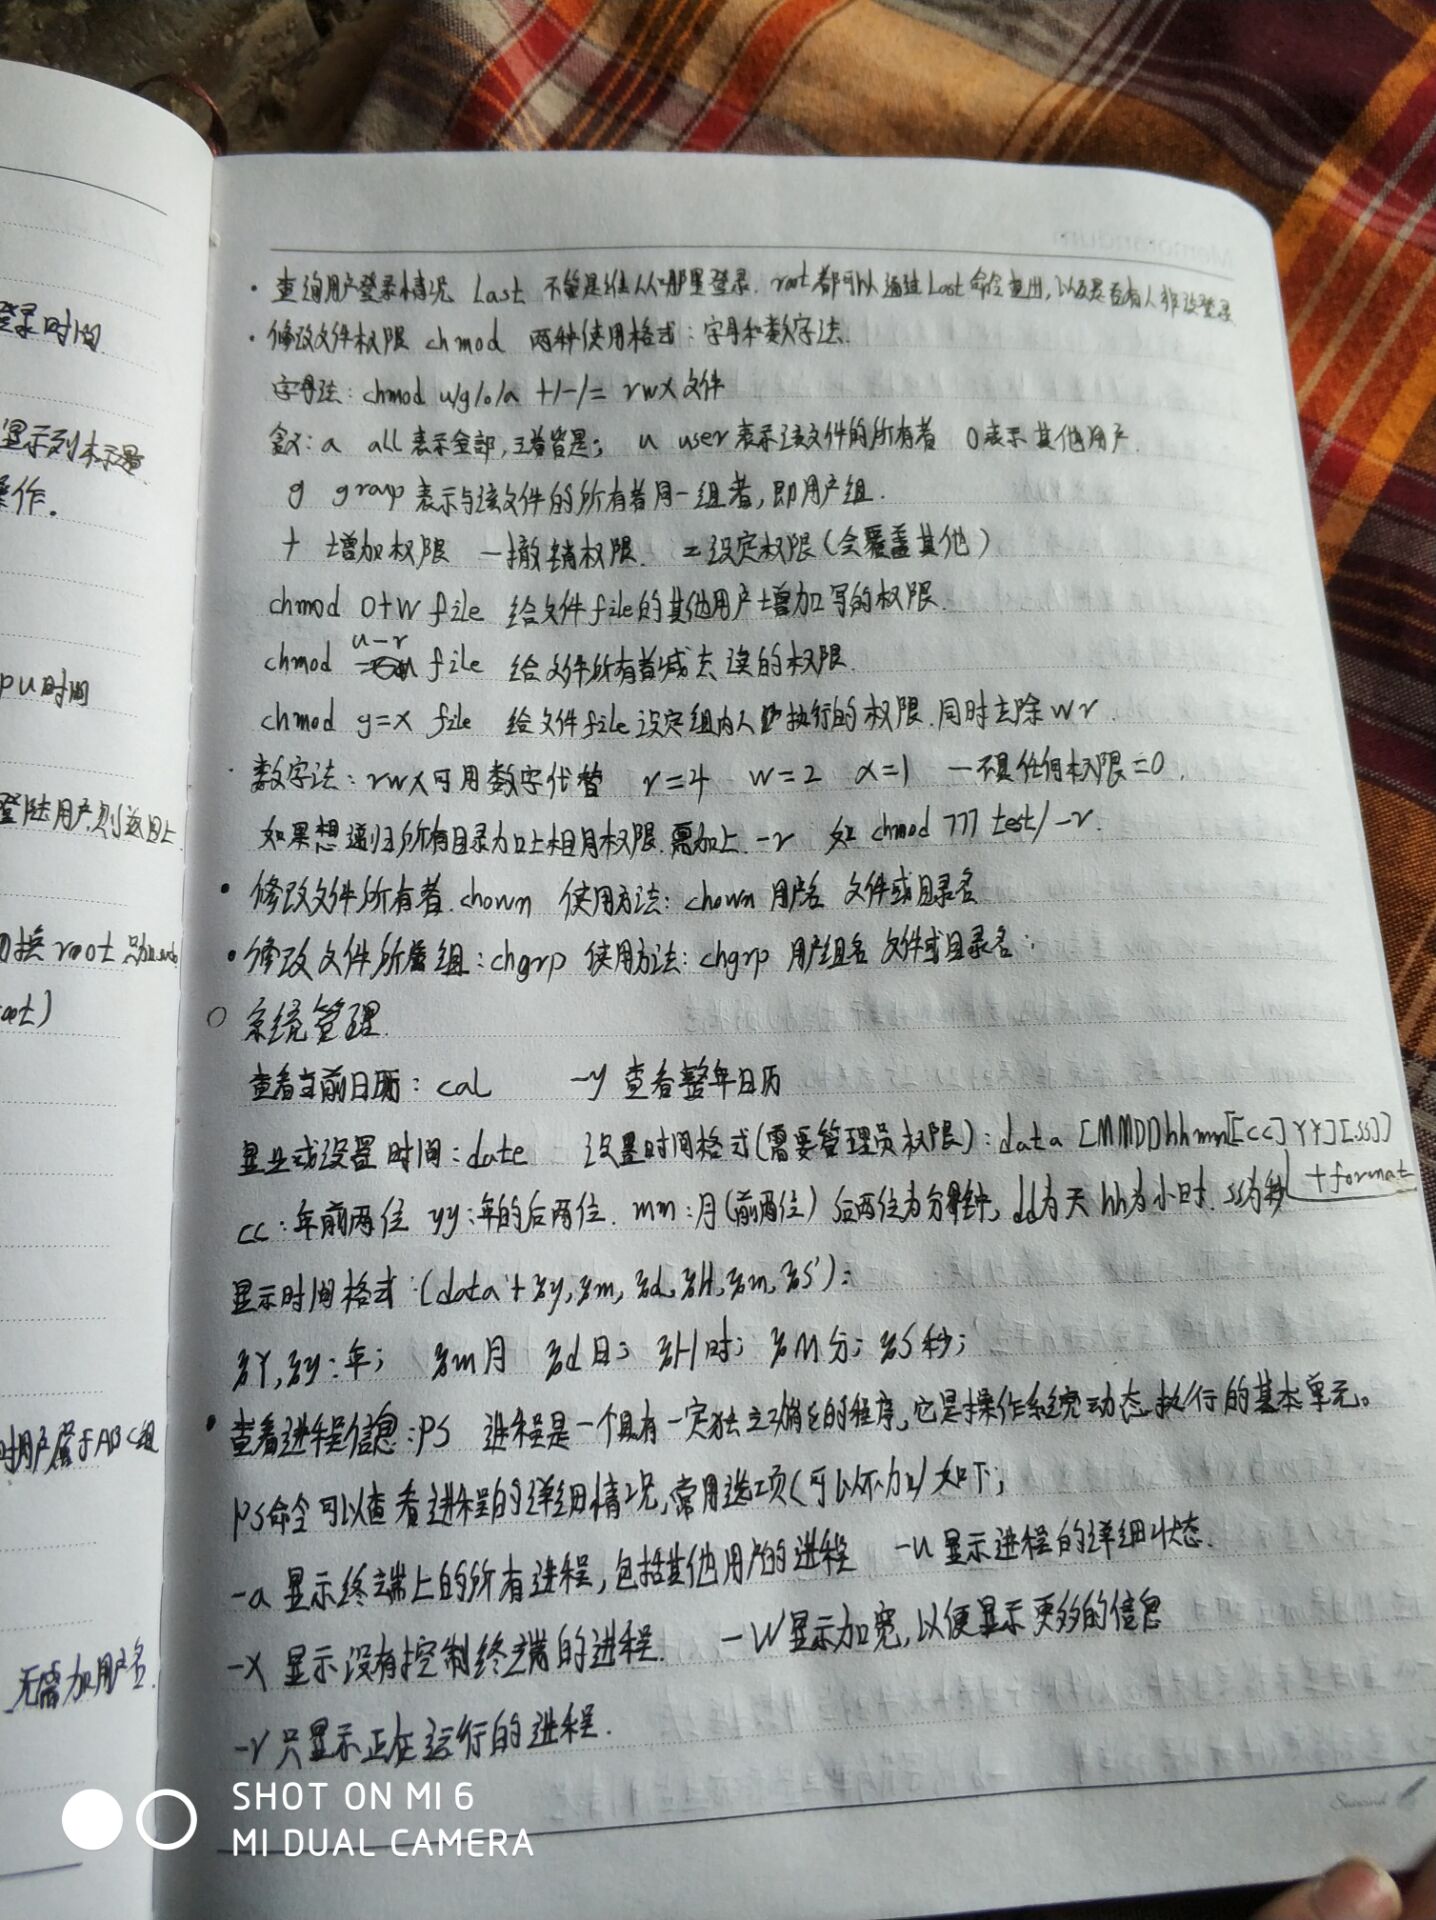 登录时间
显示列标题
操作.
PU时间
登陆用户,则返回上
切换root
无需加用户名.
时用户属于ABC组
· 查询用户登录情况 Last 不管是谁从哪里登录. root都可以通过Last命令查出,以及是否有人非法登录
· 修改文件权限 chmod 两种使用格式:字母和数字法.
字母法: chmod u/g/o/a +/-/= rwx 文件
含义: a all 表示全部,三者皆是; u user 表示该文件的所有者 O表示其他用户.
g group 表示与该文件的所有者同一组者,即用户组.
+ 增加权限 —撤销权限. =设定权限(会覆盖其他)
chmod O+W file 给文件file的其他用户增加写的权限.
chmod u-r file 给文件所有者减去读的权限.
chmod g=x file 给文件file设定组内人执行的权限.同时去除wr.
· 数字法: rwx可用数字代替 r=4 w=2 x=1 —不具任何权限=0.
如果想递归所有目录加上相同权限.需加上 -r 如 chmod 777 test/ -r.
· 修改文件所有者.chown 使用方法: chown 用户名 文件或目录名
· 修改文件所属组:chgrp 使用方法: chgrp 用户组名 文件或目录名:
○ 系统管理.
查看当前日历: cal -y 查看整年日历
显示或设置时间: date 设置时间格式(需要管理员权限): data [MMDDhhmm[[CC]YY][.ss]]
+format
cc:年前两位 yy:年的后两位. mm:月(前两位) 后两位为分钟, dd为天 hh为小时. ss为秒
显示时间格式:(data '+ %y,%m,%d,%H,%m,%S'):
%Y,%y:年; %m月 %d日; %H时; %M分; %S秒;
· 查看进程信息:PS 进程是一个具有一定独立功能的程序,它是操作系统动态执行的基本单元。
PS命令可以查看进程的详细情况,常用选项(可以不加)如下;
-a 显示终端上的所有进程,包括其他用户的进程 -u 显示进程的详细状态.
-X 显示没有控制终端的进程. -W显示加宽,以便显示更多的信息
-r 只显示正在运行的进程.
SHOT ON MI 6
MI DUAL CAMERA